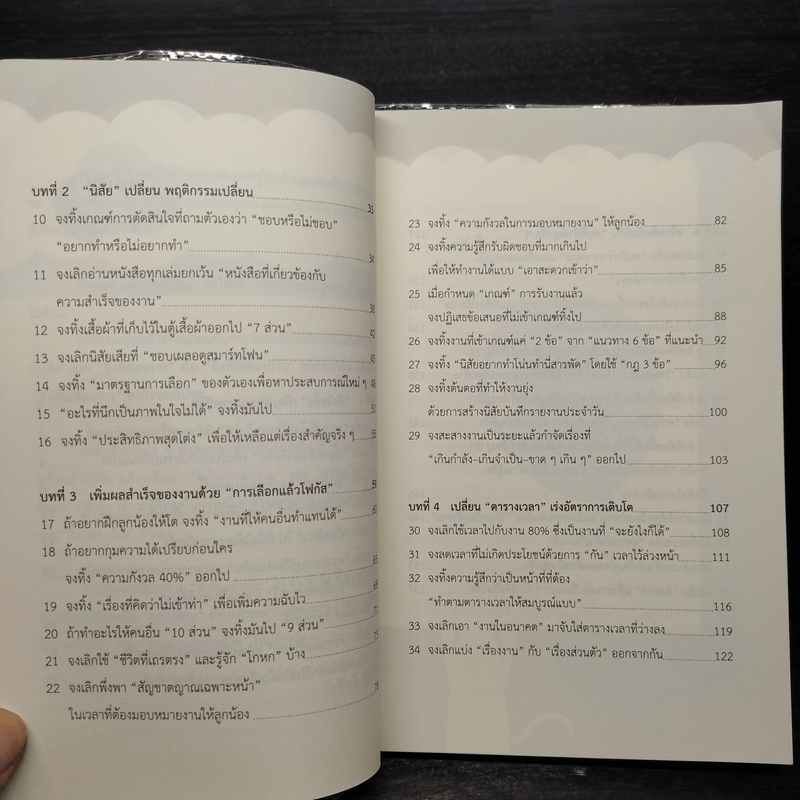 บทที่ 2 “นิสัย” เปลี่ยน พฤติกรรมเปลี่ยน 33
10 จงทิ้งเกณฑ์การตัดสินใจที่ถามตัวเองว่า “ชอบหรือไม่ชอบ”
“อยากทำหรือไม่อยากทำ” 34
11 จงเลิกอ่านหนังสือทุกเล่มยกเว้น “หนังสือที่เกี่ยวข้องกับ
ความสำเร็จของงาน” 38
12 จงทิ้งเสื้อผ้าที่เก็บไว้ในตู้เสื้อผ้าออกไป “7 ส่วน” 42
13 จงเลิกนิสัยเสียที่ “ชอบเผลอดูสมาร์ทโฟน” 45
14 จงทิ้ง “มาตรฐานการเลือก” ของตัวเองเพื่อหาประสบการณ์ใหม่ ๆ 48
15 “อะไรที่นึกเป็นภาพในใจไม่ได้” จงทิ้งมันไป
16 จงทิ้ง “ประสิทธิภาพสุดโต่ง” เพื่อให้เหลือแต่เรื่องสำคัญจริง ๆ 55
บทที่ 3 เพิ่มผลสำเร็จของงานด้วย “การเลือกแล้วโฟกัส” 59
17 ถ้าอยากฝึกลูกน้องให้โต จงทิ้ง “งานที่ให้คนอื่นทำแทนได้” 60
18 ถ้าอยากกุมความได้เปรียบก่อนใคร
จงทิ้ง “ความกังวล 40%” ออกไป
19 จงทิ้ง “เรื่องที่คิดว่าไม่เข้าท่า” เพื่อเพิ่มความฉับไว 68
20 ถ้าทำอะไรให้คนอื่น “10 ส่วน” จงทิ้งมันไป “9 ส่วน”
21 จงเลิกใช้ “ชีวิตที่เถรตรง” และรู้จัก “โกหก” บ้าง
22 จงเลิกพึ่งพา “สัญชาตญาณเฉพาะหน้า”
ในเวลาที่ต้องมอบหมายงานให้ลูกน้อง
23 จงทิ้ง “ความกังวลในการมอบหมายงาน” ให้ลูกน้อง 82
24 จงทิ้งความรู้สึกรับผิดชอบที่มากเกินไป
เพื่อให้ทำงานได้แบบ “เอาสะดวกเข้าว่า” 85
25 เมื่อกำหนด “เกณฑ์” การรับงานแล้ว
จงปฏิเสธข้อเสนอที่ไม่เข้าเกณฑ์ทิ้งไป 88
26 จงทิ้งงานที่เข้าเกณฑ์แค่ “2 ข้อ” จาก “แนวทาง 6 ข้อ” ที่แนะนำ 92
27 จงทิ้ง “นิสัยอยากทำโน่นทำนี่สารพัด” โดยใช้ “กฎ 3 ข้อ” 96
28 จงทิ้งต้นตอที่ทำให้งานยุ่ง
ด้วยการสร้างนิสัยบันทึกรายงานประจำวัน 100
29 จงสะสางงานเป็นระยะแล้วกำจัดเรื่องที่
“เกินกำลัง–เกินจำเป็น–ขาด ๆ เกิน ๆ” ออกไป 103
บทที่ 4 เปลี่ยน “ตารางเวลา” เร่งอัตราการเติบโต 107
30 จงเลิกใช้เวลาไปกับงาน 80% ซึ่งเป็นงานที่ “จะยังไงก็ได้” 108
31 จงลดเวลาที่ไม่เกิดประโยชน์ด้วยการ “กัน” เวลาไว้ล่วงหน้า 111
32 จงทิ้งความรู้สึกว่าเป็นหน้าที่ที่ต้อง
“ทำตามตารางเวลาให้สมบูรณ์แบบ” 116
33 จงเลิกเอา “งานในอนาคต” มาจับใส่ตารางเวลาที่ว่างลง 119
34 จงเลิกแบ่ง “เรื่องงาน” กับ “เรื่องส่วนตัว” ออกจากกัน 122